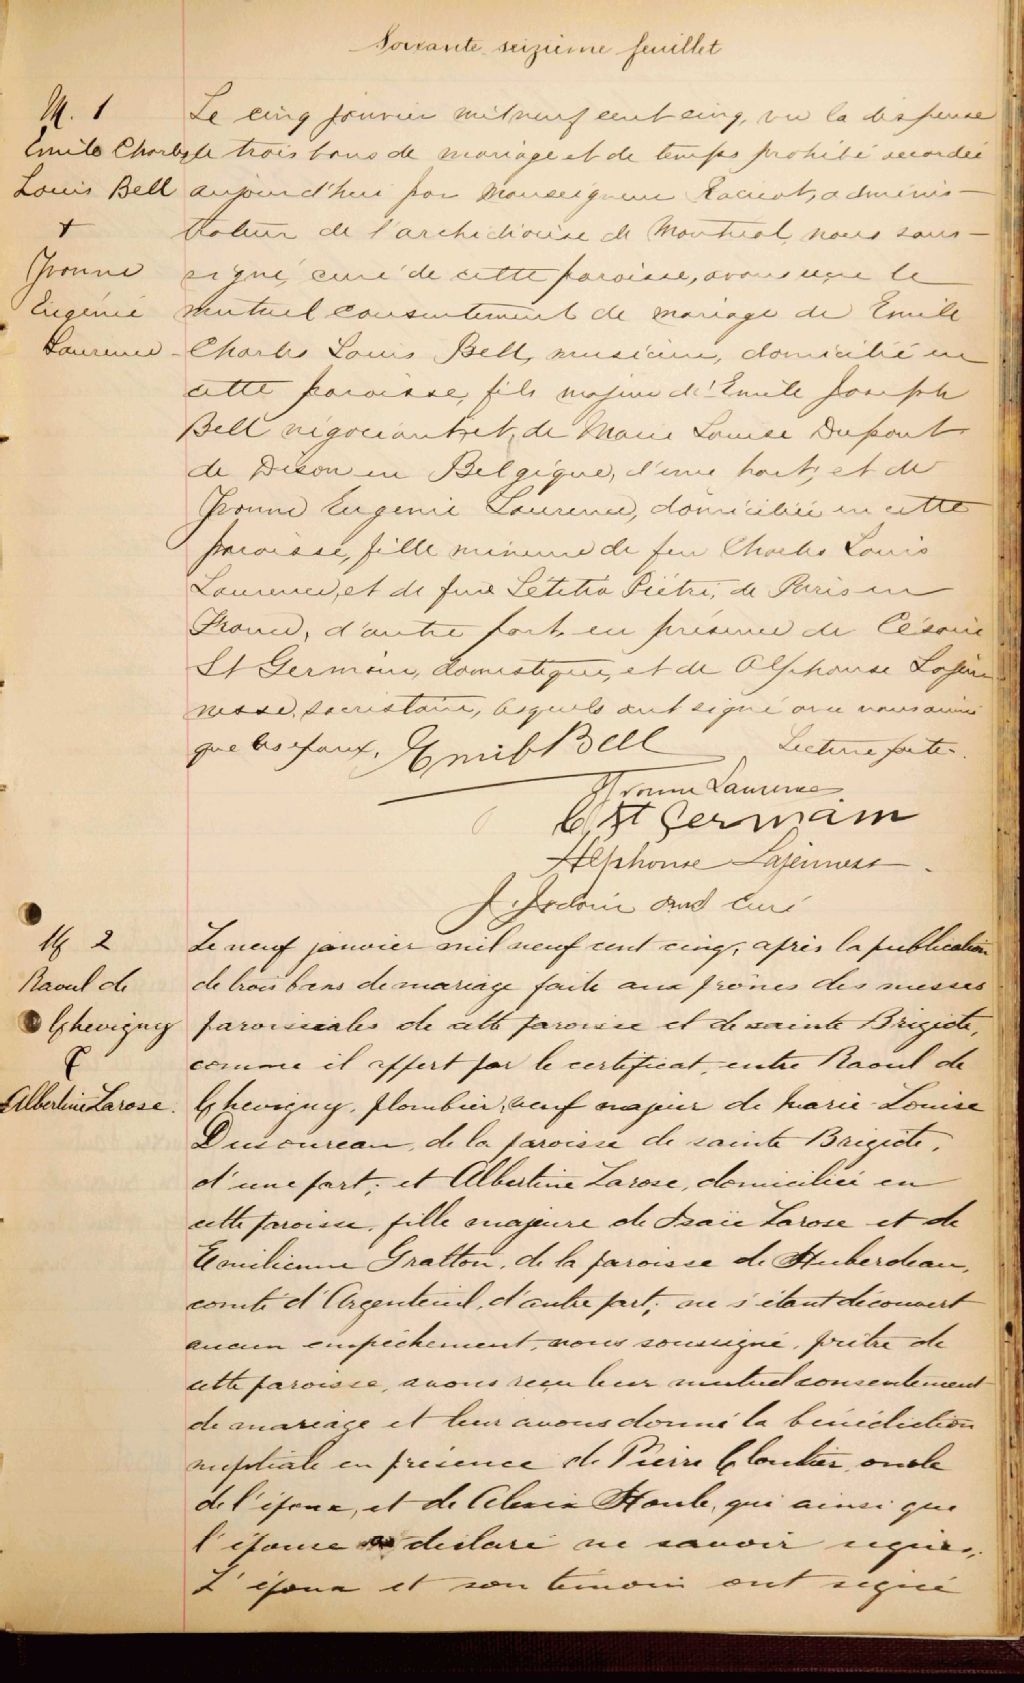 Soixante seizième feuillet
M. 1
Emile Charles
Louis Bell
+
Yvonne
Eugénie
Laurence
Le cinq janvier mil neuf cent cinq, vu la dispense
de trois bans de mariage et de temps prohibé accordée
aujourd'hui par Monseigneur Racicot, adminis-
trateur de l'archidiocèse de Montréal, nous sous-
signé, curé de cette paroisse, avons reçu le
mutuel consentement de mariage de Emile
Charles Louis Bell, musicien, domicilié en
cette paroisse, fils majeur d'Emile Joseph
Bell négociant, et de Marie Louise Dupont
de Dison en Belgique, d'une part, et de
Yvonne Eugenie Laurence, domiciliée en cette
paroisse, fille mineure de feu Charles Louis
Laurence, et de feue Létitia Piétri, de Paris en
France, d'autre part, en présence de Césarie
St Germain, domestique, et de Alphonse Lajeu-
nesse, sacristain, lesquels ont signé avec nous ainsi
que les epoux. Lecture faite.
Emile Bell
Yvonne Laurence
C. St Germain
Alphonse Lajeunesse
J. Jodoin curé
M 2
Raoul de
Chevigny
&
Albertine Larose.
Le neuf janvier mil neuf cent cinq, après la publication
de trois bans de mariage faite aux prônes des messes
paroissiales de cette paroisse et de sainte Brigide,
comme il appert par le certificat, entre Raoul de
Chevigny, plombier, veuf majeur de Marie-Louise
Dusoureau, de la paroisse de sainte Brigide,
d'une part; et Albertine Larose, domiciliée en
cette paroisse, fille majeure de Isaïe Larose et de
Emilienne Gratton, de la paroisse de Huberdeau,
comté d'Argenteuil, d'autre part; ne s'étant découvert
aucun empêchement, nous soussigné, prêtre de
cette paroisse, avons reçu leur mutuel consentement
de mariage et leur avons donné la bénédiction
nuptiale en présence de Pierre Cloutier, oncle
de l'époux, et de Alexis Houle, qui ainsi que
l'épouse a déclaré ne savoir signer.
L'époux et son témoin ont signé